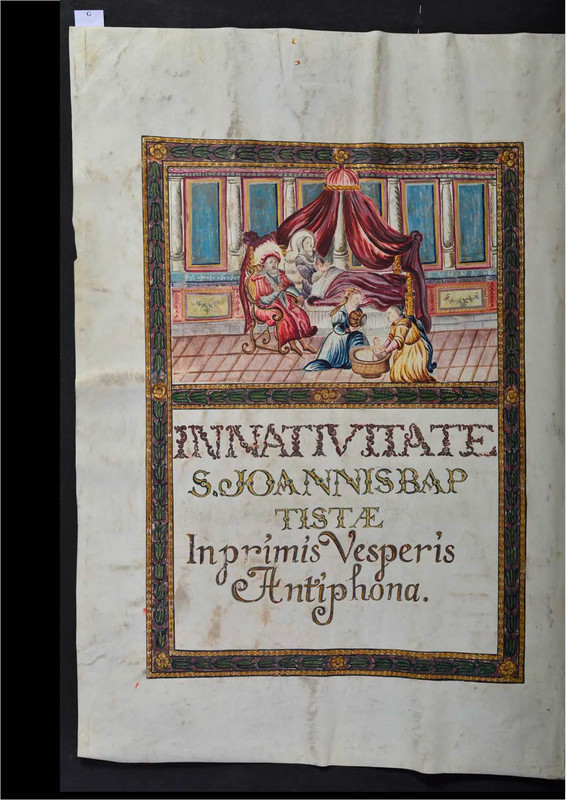 G
IN NATIVITATE
S. JOANNIS BAP
TISTÆ
In primis Vesperis
Antiphona.